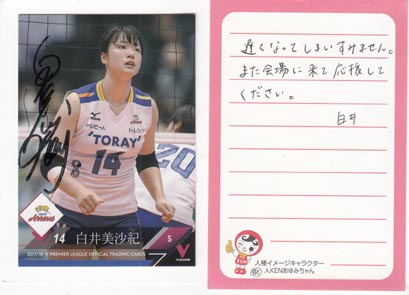 トレビーノ
トレシー
TORAY
14
8
20
TORAY
Arrows
14 白井美沙紀 S
V.LEAGUE
2017/18 V・PREMIER LEAGUE OFFICIAL TRADING CARDS
遅くなってしまいすみません。
また会場に来て応援して
ください。
白井
人権イメージキャラクター
人KENあゆみちゃん